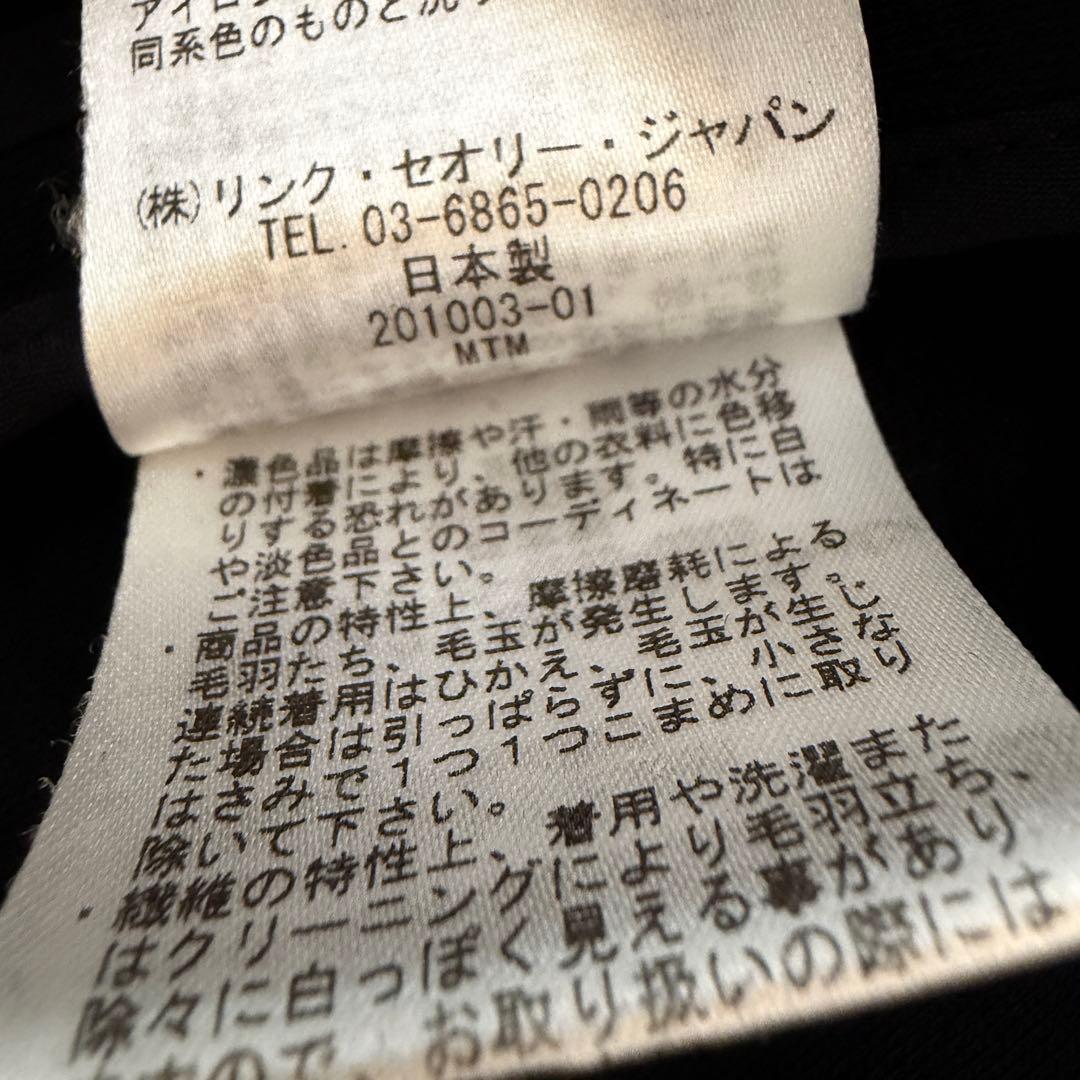 同系色のものと洗
(株)リンク・セオリー・ジャパン
TEL. 03-6865-0206
日本製
201003-01
MTM
・濃色品は摩擦や汗・雨等の水分
の付着により、他の衣料に色移
りする恐れがあります。特に白
や淡色品とのコーディネートは
ご注意下さい。
・商品の特性上、摩擦磨耗による
毛羽たち、毛玉が発生します。
連続着用はひかえ、毛玉が生じ
た場合は引っぱらずに、小さな
はさみで1つ1つこまめに取り
除いて下さい。
・繊維の特性上、着用や洗濯また
はクリーニングにより毛羽立ち、
除々に白っぽく見える事があり
ますので、お取り扱いの際には